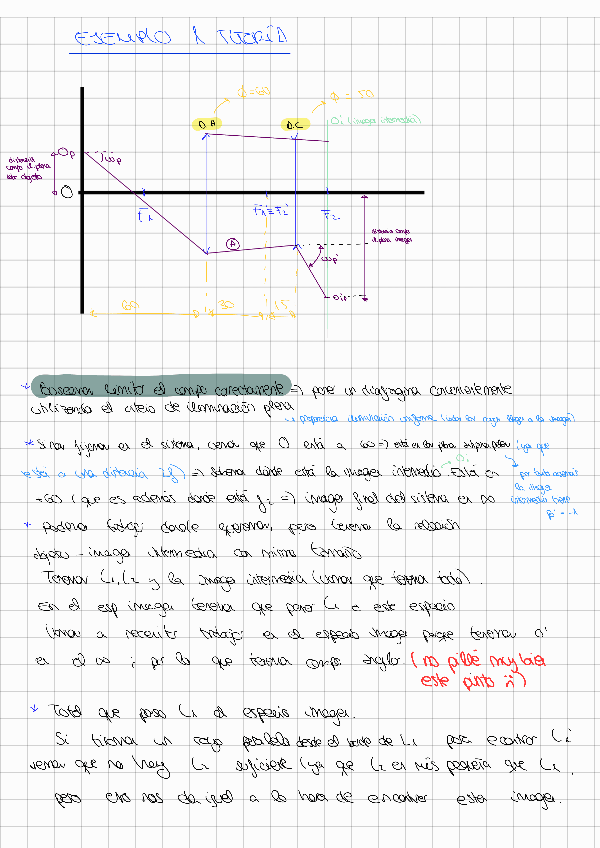 EJEMPLO 1 TUTORÍA
ϕ=60
ϕ = 50
D.A
D.C
O'1 (imagen intermedia)
distancia
campo el plano
Op
ωp
O
F1
F'1≡F2
F'2
distancia campo
el plano imagen
A
ωp'
60
30
15
* Buscamos limitar el campo correctamente => poner un diafragma convenientemente
utilizando el criterio de iluminación plena
↳ proporciona iluminación uniforme (todos los rayos llegan a la imagen)
* Si nos fijamos en el sistema, vemos que O está a 60 => está en los planos (ya que
está a una distancia 2f) => sabemos dónde está la imagen intermedia. Está en
+60 (que es además donde está f2 => imagen final del sistema en ∞
por tanto
la imagen
intermedia tiene
β' = -1
* Podemos trabajar donde queramos, pero tenemos la relación
objeto - imagen intermedia con mismo tamaño
Tenemos L1, L2 y la imagen intermedia (vemos que tenemos todo).
En el esp imagen tenemos que pasar L1 a este espacio
Vamos a necesitar trabajar en el espacio imagen porque tenemos O'
en el ∞ ; por lo que tenemos campo angular (no pillé muy bien
este punto :))
* Total que paso L1 al espacio imagen.
Si tiramos un rayo paralelo desde el borde de L1 para encontrar L1'
vemos que no hay L2 suficiente (ya que L2 es más pequeña que L1,
pero eso nos da igual a la hora de encontrar esta imagen.